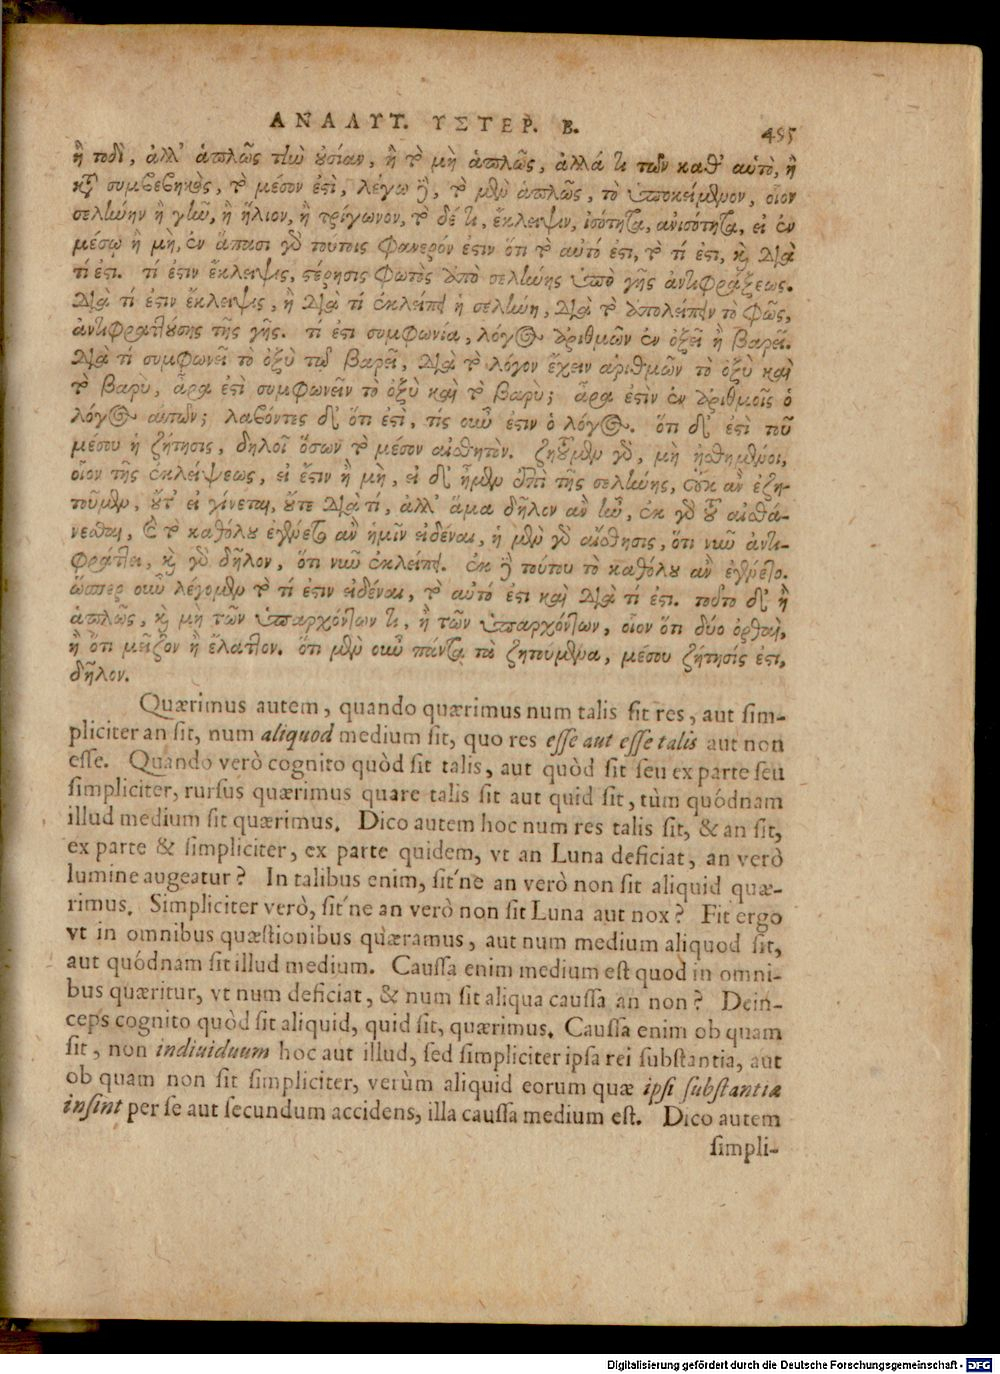 ΑΝΑΛΥΤ. ΥΣΤΕΡ. Β. 485
ἢ τοδὶ, ἀλλ' ἁπλῶς τὴν οὐσίαν, ἢ τὸ μὴ ἁπλῶς, ἀλλά τι τῶν καθ' αὑτὸ, ἢ
κατὰ συμβεβηκὸς, τὸ μέσον ἐστὶ, λέγω δὲ, τὸ μὲν ἁπλῶς, τὸ ὑποκείμενον, οἷον
σελήνην ἢ γῆν, ἢ ἥλιον, ἢ τρίγωνον, τὸ δέ τι, ἔκλειψιν, ἰσότητα, ἀνισότητα, εἰ ἐν
μέσῳ ἢ μὴ, ἐν ἅπασι γὸ τούτοις φανερόν ἐστιν ὅτι τὸ αὐτό ἐστι, τὸ τί ἐστι, καὶ διὰ
τί ἐστι. τί ἐστιν ἔκλειψις, στέρησις φωτὸς ἀπὸ σελήνης ὑπὸ γῆς ἀντιφράξεως.
διὰ τί ἐστιν ἔκλειψις, ἢ διὰ τί ἐκλείπει ἡ σελήνη, διὰ τὸ ἀπολείπειν τὸ φῶς,
ἀντιφραττούσης τῆς γῆς. τί ἐστι συμφωνία, λόγος ἀριθμῶν ἐν ὀξεῖ ἢ βαρεῖ.
διὰ τί συμφωνεῖ τὸ ὀξὺ τῷ βαρεῖ, διὰ τὸ λόγον ἔχειν ἀριθμῶν τὸ ὀξὺ καὶ
τὸ βαρὺ, ἆρα ἐστὶ συμφωνεῖν τὸ ὀξὺ καὶ τὸ βαρὺ; ἆρα ἐστὶν ἐν ἀριθμοῖς ὁ
λόγος αὐτῶν; λαβόντες δ' ὅτι ἐστὶ, τίς οὖν ἐστιν ὁ λόγος. ὅτι δ' ἐστὶ τοῦ
μέσου ἡ ζήτησις, δηλοῖ ὅσων τὸ μέσον αἰσθητὸν. ζητοῦμεν γὸ, μὴ ᾐσθημένοι,
οἷον τῆς ἐκλείψεως, εἰ ἔστιν ἢ μὴ, εἰ δ' ἦμεν ἐπὶ τῆς σελήνης, οὐκ ἂν ἐζη-
τοῦμεν, οὔτ' εἰ γίνεται, οὔτε διὰ τί, ἀλλ' ἅμα δῆλον ἂν ἦν, ἐκ γὸ τοῦ αἰσθά-
νεσθαι, καὶ τὸ καθόλου ἐγένετο ἂν ἡμῖν εἰδέναι, ἡ μὲν γὸ αἴσθησις, ὅτι νῦν ἀντι-
φράττει, καὶ γὸ δῆλον, ὅτι νῦν ἐκλείπει. ἐκ δὲ τούτου τὸ καθόλου ἂν ἐγένετο.
ὥσπερ οὖν λέγομεν τὸ τί ἐστιν εἰδέναι, τὸ αὐτό ἐστι καὶ διὰ τί ἐστι. τοῦτο δ' ἢ
ἁπλῶς, καὶ μὴ τῶν ὑπαρχόντων τι, ἢ τῶν ὑπαρχόντων, οἷον ὅτι δύο ὀρθαὶ,
ἢ ὅτι μεῖζον ἢ ἔλαττον. ὅτι μὲν οὖν πάντα τὰ ζητούμενα, μέσου ζήτησίς ἐστι,
δῆλον.
Quærimus autem, quando quærimus num talis ſit res, aut ſim-
pliciter an ſit, num aliquod medium ſit, quo res eſſe aut eſſe talis aut non
eſſe. Quando verò cognito quòd ſit talis, aut quòd ſit ſeu ex parte ſeu
ſimpliciter, rurſus quærimus quare talis ſit aut quid ſit, tùm quódnam
illud medium ſit quærimus. Dico autem hoc num res talis ſit, & an ſit,
ex parte & ſimpliciter, ex parte quidem, vt an Luna deficiat, an verò
lumine augeatur? In talibus enim, ſit'ne an verò non ſit aliquid quæ-
rimus. Simpliciter verò, ſit'ne an verò non ſit Luna aut nox? Fit ergo
vt in omnibus quæſtionibus quæramus, aut num medium aliquod ſit,
aut quódnam ſit illud medium. Cauſſa enim medium eſt quod in omni-
bus quæritur, vt num deficiat, & num ſit aliqua cauſſa an non? Dein-
ceps cognito quòd ſit aliquid, quid ſit, quærimus. Cauſſa enim ob quam
ſit, non indiuiduum hoc aut illud, ſed ſimpliciter ipſa rei ſubſtantia, aut
ob quam non ſit ſimpliciter, verùm aliquid eorum quæ ipſi ſubſtantiæ
inſint per ſe aut ſecundum accidens, illa cauſſa medium eſt. Dico autem
ſimpli-
Digitalisierung gefördert durch die Deutsche Forschungsgemeinschaft - DFG